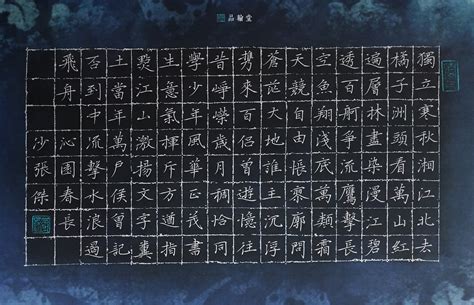 品翰堂
獨立寒秋湘江北去
橘子洲頭看萬山紅
遍層林盡染漫江碧
透百舸爭流鷹擊長
空魚翔淺底萬類霜
天競自由悵寥廓問
蒼茫大地誰主沉浮
攜來百侶曾遊憶往
昔崢嶸歲月稠恰同
學少年風華正茂書
生意氣揮斥方遒指
點江山激揚文字糞
土當年萬戶侯曾記
否到中流擊水浪遏
飛舟 沁園春長
沙張傑